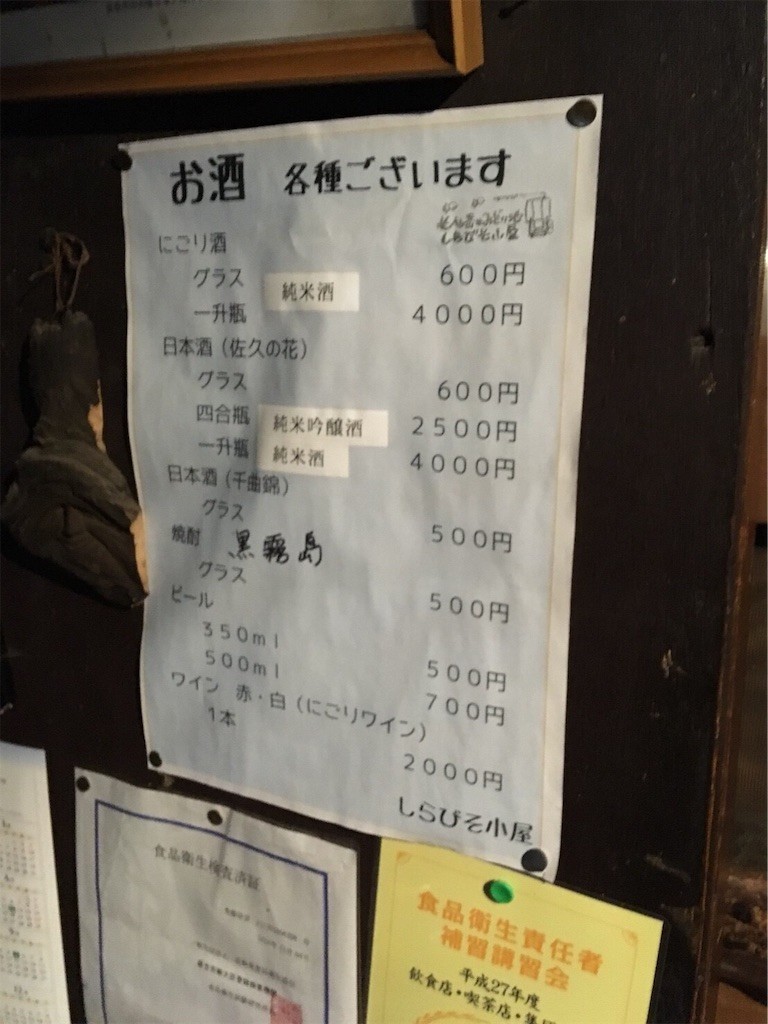 お酒 各種ございます
にごり酒
グラス 純米酒 600円
一升瓶 4000円
日本酒（佐久の花）
グラス 600円
四合瓶 純米吟醸酒 2500円
一升瓶 純米酒 4000円
日本酒（千曲錦）
グラス 500円
焼酎 黒霧島
グラス 500円
ビール
350ml 500円
500ml 700円
ワイン 赤・白（にごりワイン）
1本 2000円
しらびそ小屋
食品衛生検査済証
食品衛生責任者
補習講習会
平成27年度
飲食店・喫茶店・集団